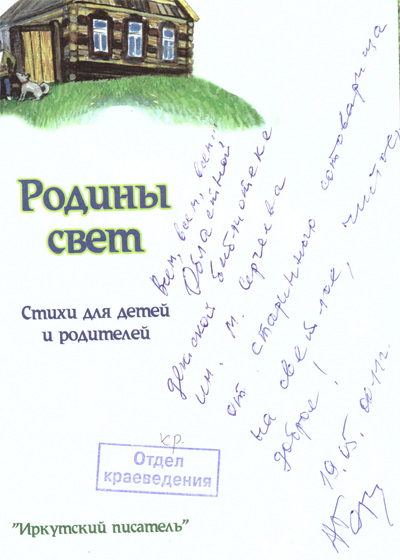 Родины
свет
Стихи для детей
и родителей
всем, всем, всем...
Областной
детской библиотеке
им. М. Сергеева
от старинного сотоварища
на светлое, чистое,
доброе!
19.05.2011г.
кр.
Отдел
краеведения
"Иркутский писатель"